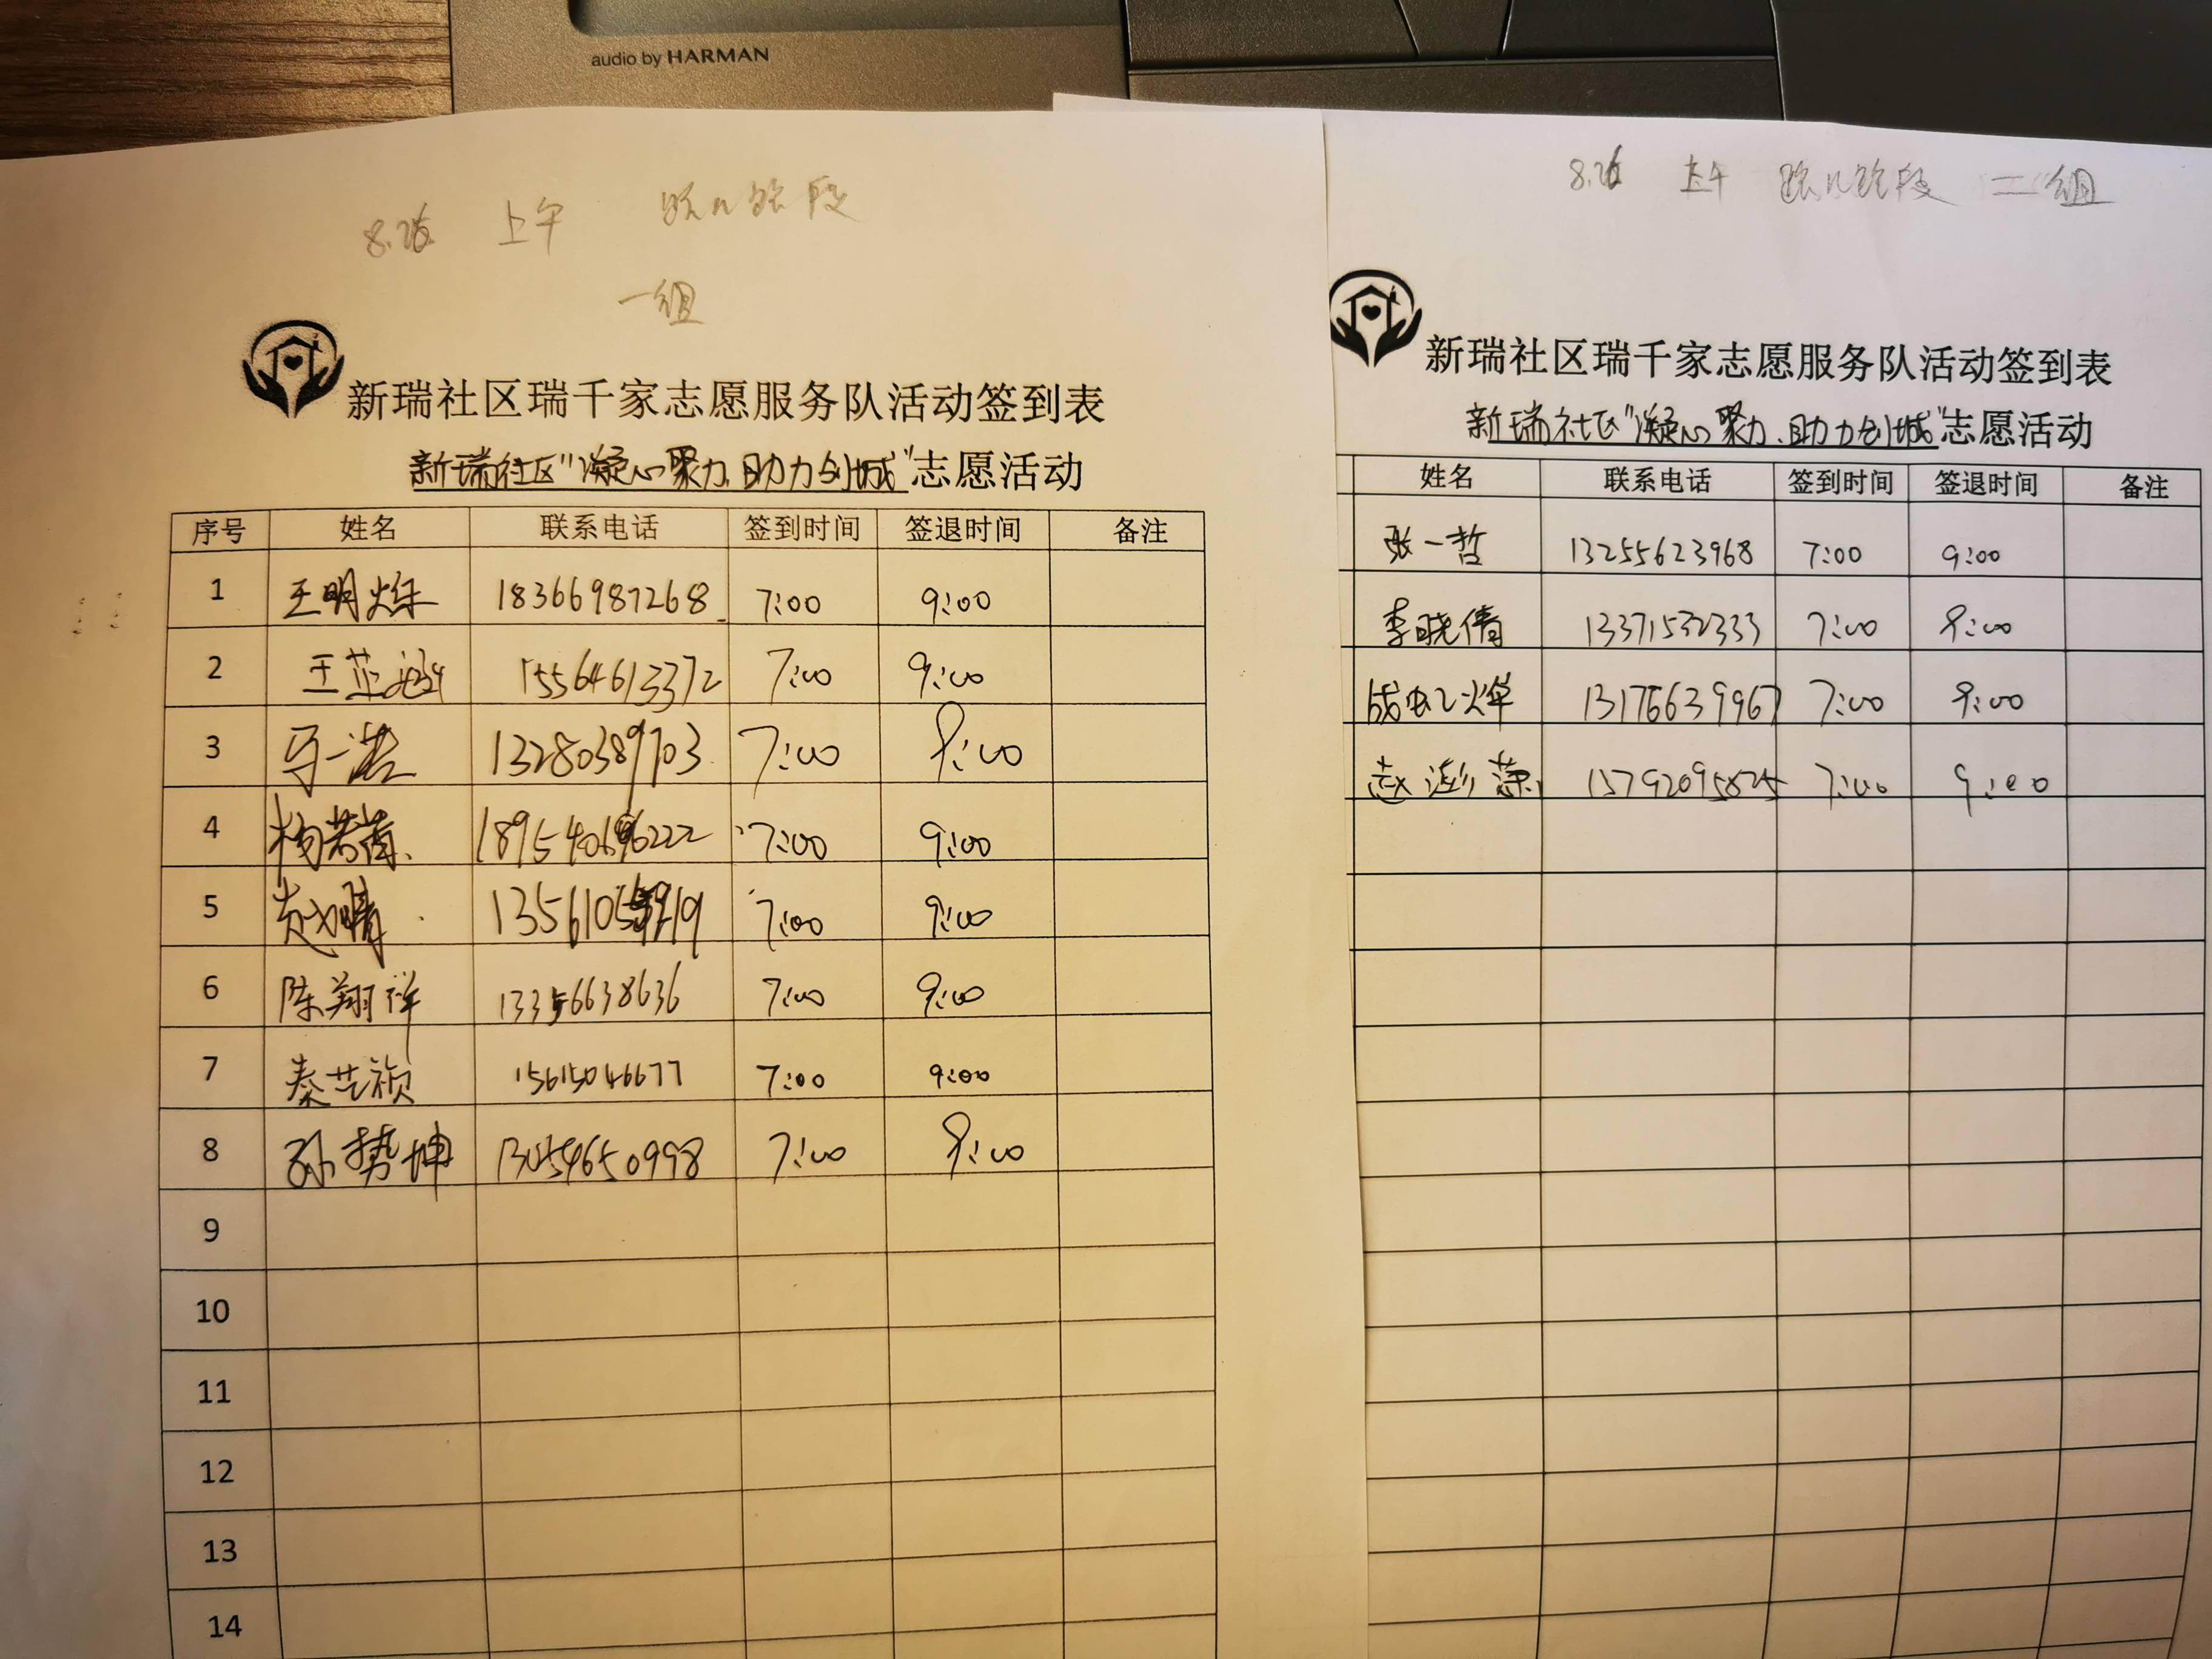 audio by HARMAN
8.26 上午 路段
一组
新瑞社区瑞千家志愿服务队活动签到表
新瑞社区"凝心聚力、助力创城"志愿活动
序号 姓名 联系电话 签到时间 签退时间 备注
1 王明烁 18366987268 7:00 9:00
2 王芷涵 15564613372 7:00 9:00
3 马一浩 13280389703 7:00 9:00
4 杨若 7:00 9:00
5 赵晴 7:00 9:00
6 陈翔祥 13356638636 7:00 9:00
7 秦艺祯 15615046677 7:00 9:00
8 孙势坤 13054650998 7:00 9:00
9
10
11
12
13
14
8.26 上午 路段 二组
新瑞社区瑞千家志愿服务队活动签到表
新瑞社区"凝心聚力、助力创城"志愿活动
姓名 联系电话 签到时间 签退时间 备注
张一哲 13255623968 7:00 9:00
李晓倩 13371532333 7:00 9:00
成虹烨 13176639967 7:00 9:00
赵澎 15792095825 7:00 9:00